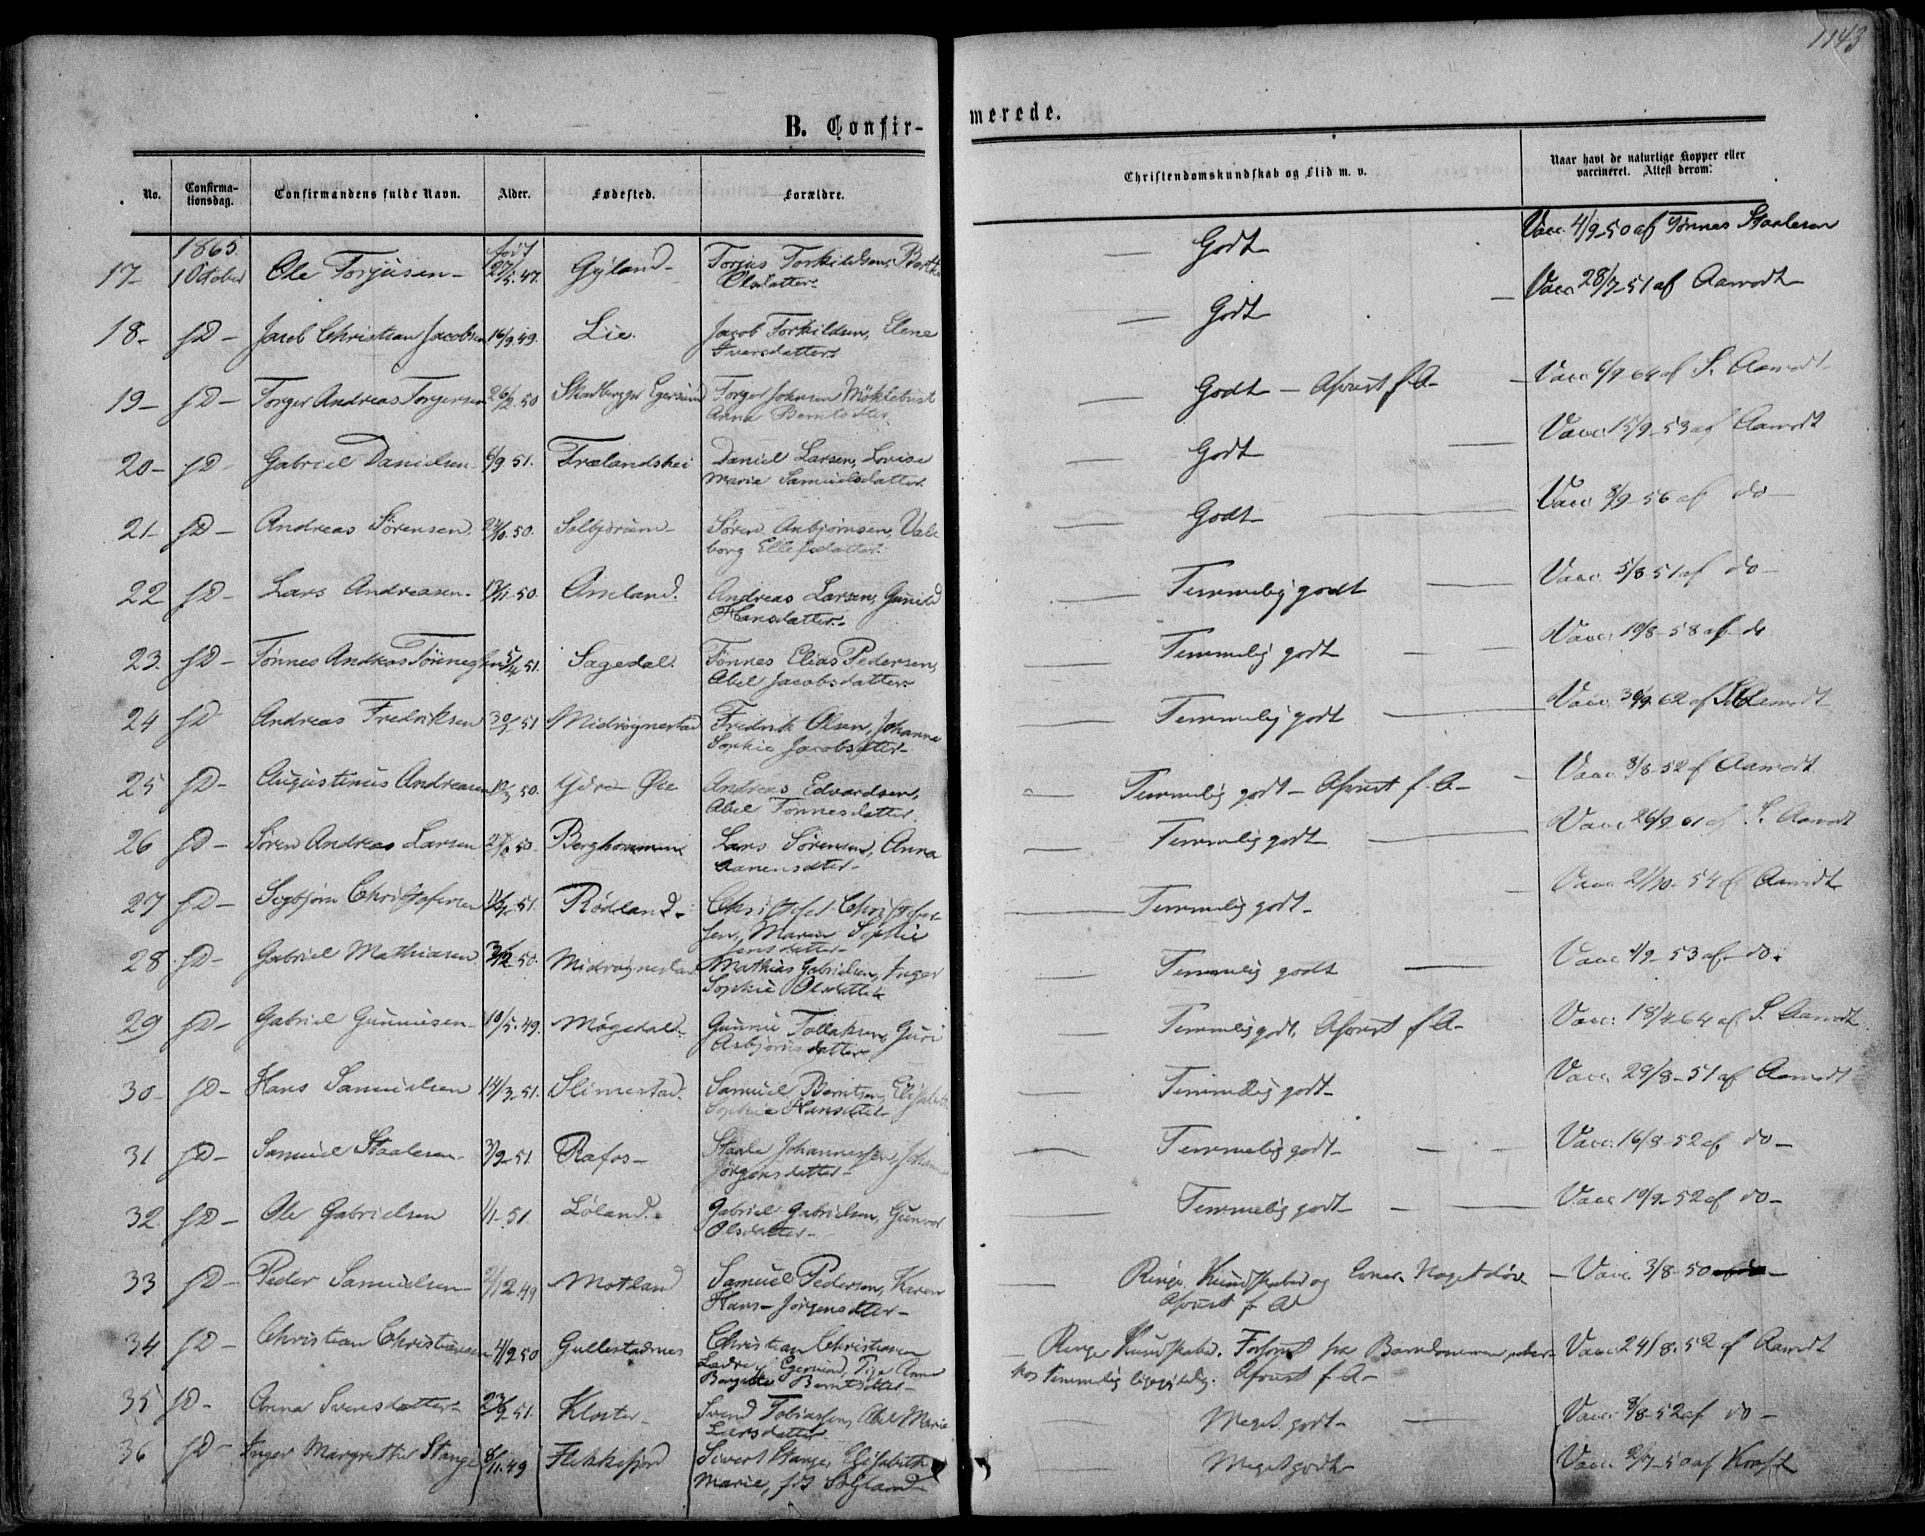 1143
B. Confir-
merede.
No.
Confirma-
tionsdag.
Confirmandens fulde Navn.
Alder.
Fødested.
Forældre.
Christendomskundskab og Flid m. v.
Naar havt de naturlige Kopper eller
vaccineret. Attest derom.
1865 født
17- 1 October Ole Torjusen- 27/5.47. Gyland- Torjus Torkildsen, Berthe
Olsdatter-
Godt Vacc. 4/9-50 af Tønnes Staalesen
18- fD- Jacob Christian Jacobsen 16/9.49. Lie. Jacob Torkildsen, Elene
Iversdatter
Godt Vacc. 28/7-51 af Aamodt
19- fD- Torger Andreas Torgersen 26/2.50 Egersund Torger Johnsen Møklebust
Anna Berntsdtter
Godt - f A- Vacc. 64 af S. Aamodt
20- fD- Gabriel Danielsen 6/9 51. Frælandshei Daniel Larsen, Lovise
Maria Samuelsdatter
Godt Vacc. 15/9-53 af Aamodt
21- fD- Andreas Sørensen. 50. Solbjørum- Søren Asbjørnsen, Val-
borg Ellefsdatter
Godt Vacc. 8/9-56 af do-
22 fD- Lars Andreasen- 13/11.50. Aneland. Andreas Larsen, Gunild
Hansdatter-
Temmelig godt Vacc. 5/8 51 af do-
23. fD- Tønnes Andreas Tønnessen 5/4.51. Sagedal. Tønnes Elias Pedersen,
Abel Jacobsdatter
Temmelig godt Vacc. 19/8-58 af do
24 fD Andreas Fredriksen 51 Midrøgnestad Fredrik Olsen, Johanne
Sophie Jacobsdtter-
Temmelig godt Vacc. 30/9 62 af Aamodt
25 fD- Augustinus Andreasen 50. Ydre Øie Andreas Edvardsen,
Abel Tønnesdatter.
Temmelig godt- f. A- Vacc. 3/8-52 af Aamodt
26 fD- Søren Andreas Larsen 50 Lars Sørensen, Anna
Aanensdtter-
Temmelig godt Vacc. 26/9-61 af S. Aamodt
27 fD- Christofersen 51. Rødland- Christofer Christofer-
sen, Maren Sophie
Jensdatter-
Temmelig godt- Vacc. 21/10-54 af Aamodt
28 fD- Gabriel Mathiasen 50- Midrøgnestad Mathias Gabrielsen, Inger
Sophie Olsdatter
Temmelig godt Vacc. 1/9-53 af do.
29 fD- Gabriel Gunnusen- 10/5.49. Møgedal- Tollaksen, Guri
Asbjørnsdatter
Temmelig godt. f A- Vacc. 18/4 64 af S. Aamodt
30- fD- Hans Samuelsen 14/3.51. Slimestad. Samuel Berntsen, Elisabeth
Sophie Hansdtter-
Temmelig godt- Vacc. 29/8-51 af Aamodt
31 fD- Samuel Staalesen- 51 Rafos- Staale Johannessen, Johanne
Jørgensdatter-
Temmelig godt- Vacc. 16/8-52 af do-
32. fD- Ole Gabrielsen 1/1-51. Løland. Gabriel Gabrielsen, Gunvor
Olsdatter-
Temmelig godt- Vacc. 10/9-52 af do-
33 fD- Peder Samuelsen 2/12.49 Motland Samuel Pedersen, Karen
Hans-Jørgensdtter-
Ringe Kundskaber og Evner. Noget døv f A
-Vacc. 3/8-50
34 fD- Christian Christiansen 50 Gullestadnes Christian Christiansen
Egersund, Pige Anne
Bergitte Berntsdtter-
Ringe Kundskaber. fra Barndommen
Temmelig f A-
Vacc. 24/8-52 af Aamodt
35 fD- Anna Svensdatter 51. Kloster- Svend Tobiassen, Abel Marie
Larsdatter
Meget godt- Vacc. 8/8-52 af do-
36 fD- Inger Margrethe Stange 8/11.49 Flekkefjord Sivert Stange, Elisabeth
Marie, født
Meget godt Vacc. 2/7-50 af Kraft